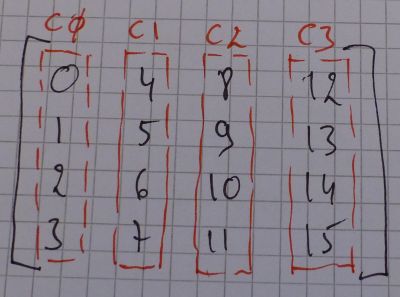 CØ C1 C2 C3
0 4 8 12
1 5 9 13
2 6 10 14
3 7 11 15